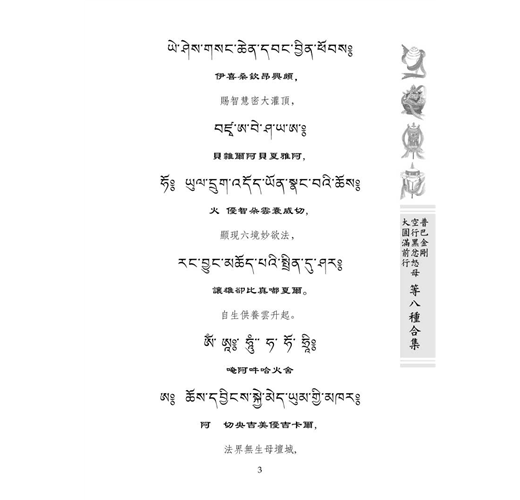 ཡེ་ཤེས་གསང་ཆེན་དབང་བྱིན་ཕོབས༔
伊喜桑欽昂興頗，
賜智慧密大灌頂，
བཛྲ་ཨ་བེ་ཤ་ཡ་ཨ༔
貝雜爾阿貝夏雅阿，
ཧོ༔ ཡུལ་དྲུག་འདོད་ཡོན་སྣང་བའི་ཆོས༔
火 優智朵雲囊威切，
顯現六境妙欲法，
རང་བྱུང་མཆོད་པའི་སྤྲིན་དུ་ཤར༔
讓雄卻比真嘟夏爾。
自生供養雲升起。
ཨོཾ་ ཨཱཿ ཧཱུྃ་ ཧ་ ཧོ་ ཧྲཱིཿ
唵阿吽哈火舍
ཨ༔ ཆོས་དབྱིངས་སྐྱེ་མེད་ཡུམ་གྱི་མཁར༔
阿 切央吉美優吉卡爾，
法界無生母壇城，
普巴金剛
空行黑忿怒母
大圓滿前行
等八種合集
3